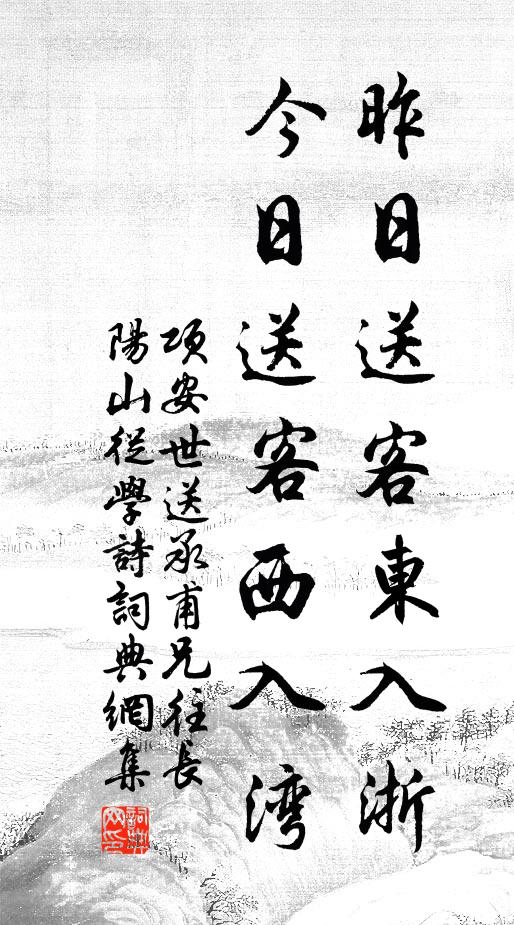 昨日送客東入浙
今日送客西入湾
項安世送承甫兄往長
陽山從學詩詞典網集